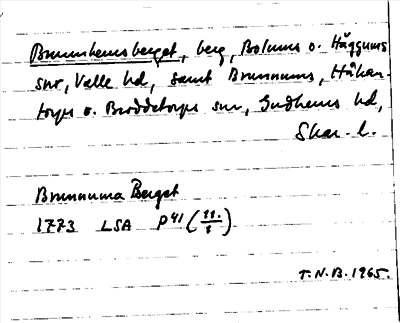 Brunnhemsberget, berg, Bolums o. Häggums
snr, Valle hd, samt Brunnums, Håkan-
torps o. Broddetorps snr, Gudhems hd,
Skar. l.
Brunnuma Berget
1773 LSA P41 (11./1)
T.N.B. 1965.